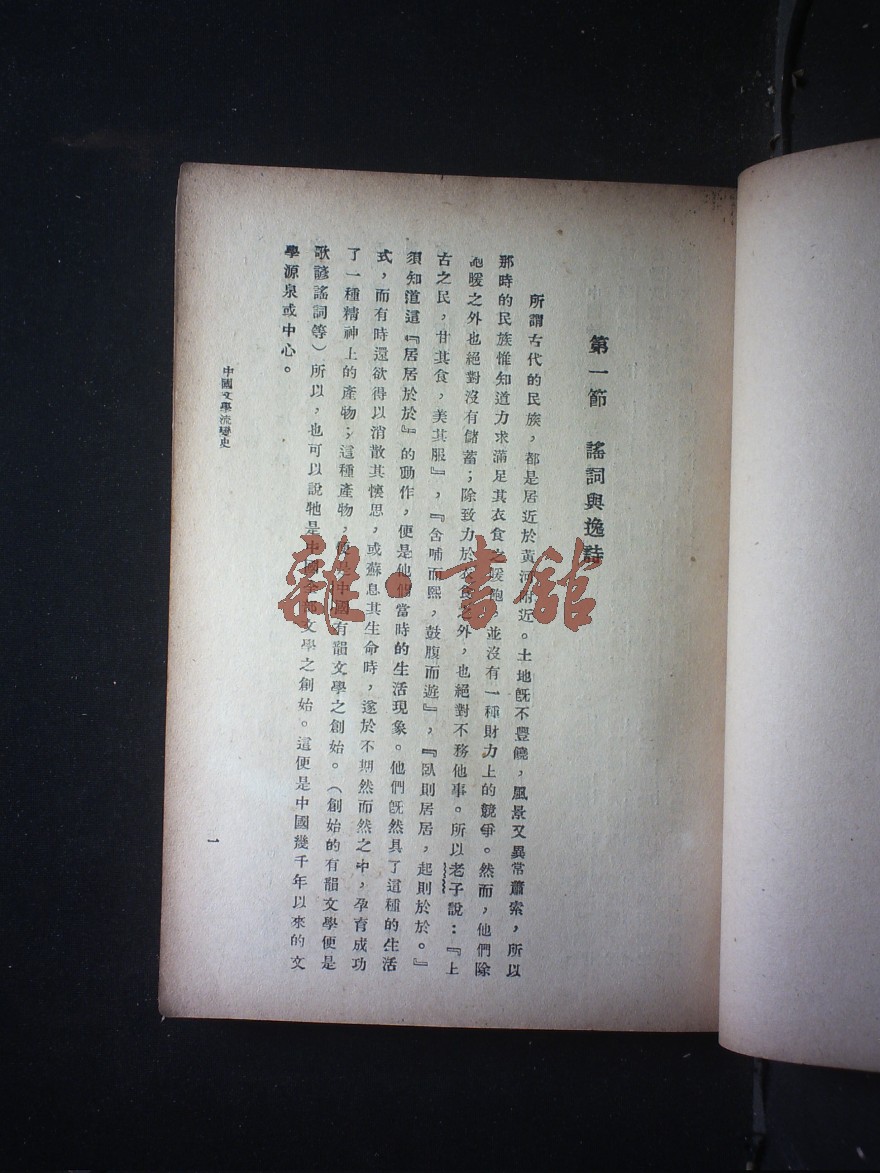 第一節　謠詞與逸詩
所謂古代的民族，都是居近於黃河附近。土地旣不豐饒，風景又異常蕭索，所以
那時的民族惟知道力求滿足其衣食之暖飽。並沒有一種財力上的競爭。然而，他們除
飽暖之外也絕對沒有儲蓄；除致力於衣食之外，也絕對不務他事。所以老子說：『上
古之民，甘其食，美其服』，『含哺而熙，鼓腹而遊』，『臥則居居，起則於於。』
須知道這『居居於於』的動作，便是他們當時的生活現象。他們旣然具了這種的生活
式，而有時還欲得以消散其懷思，或蘇息其生命時，遂於不期然而然之中，孕育成功
了一種精神上的產物；這種產物，便是中國有韻文學之創始。（創始的有韻文學便是
歌謠詞等）所以，也可以說牠是中國文學之創始。這便是中國幾千年以來的文
學源泉或中心。
中國文學流變史
一
雜·書館